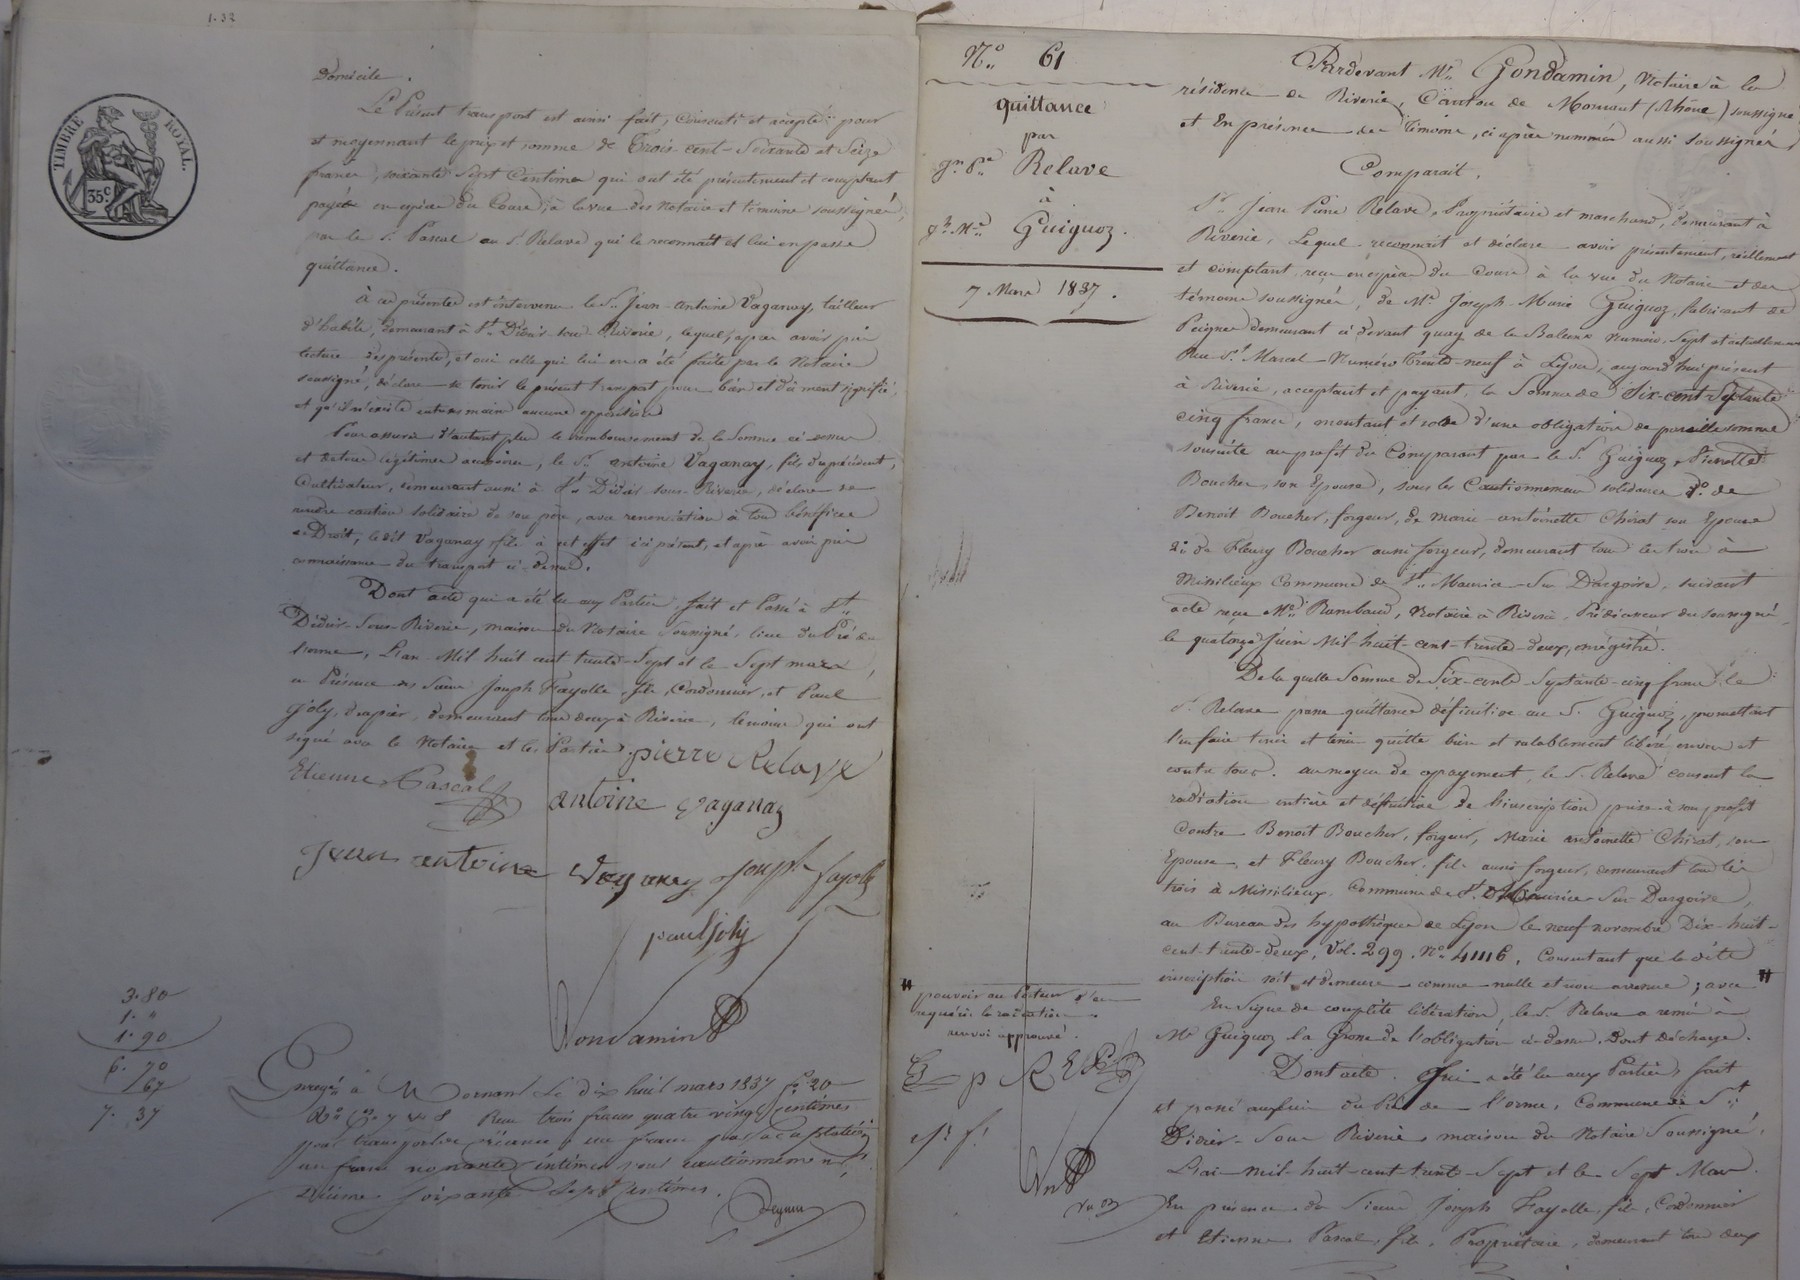 1.32
TIMBRE ROYAL.
35c.
Domicile.
Le Présent transport est ainsi fait, consenti et accepté pour
et moyennant le prix et somme de Trois-cent-Soixante et Seize
francs, soixante Sept Centimes qui ont été présentement et comptant
payés en espèces du Cours, à la vue des Notaire et témoins soussignés,
par le S. Pascal au S. Relave qui le reconnaît et lui en passe
quittance.
À ces présentes est intervenu le S. Jean-Antoine Vaganay, tailleur
d'habits, demeurant à St. Didier sous Riverie, lequel, après avoir pris
lecture des présentes, et oui celle qui lui en a été faite par le Notaire
soussigné, déclare se tenir le présent transport pour bien et dûment signifié,
et qu'il n'existe entre ses mains aucune opposition
Pour assurer d'autant plus le remboursement de la Somme ci dessus
et de tous légitimes accessoires, le S. antoine Vaganay, fils du précédent,
Cultivateur, demeurant aussi à St. Didier-sous-Riverie, déclare se
rendre caution solidaire de son père, avec renonciation à tout bénéfice
de Droit, ledit Vaganay fils à cet effet ici présent, et après avoir pris
connaissance du transport ci-dessus.
Dont acte qui a été lu aux Parties, fait et Passé à St.
Didier-Sous-Riverie, maison du Notaire Soussigné, lieu du Pré de
l'orme, L'an Mil huit cent trente-Sept et le Sept mars,
en Présence des Sieurs Joseph Fayolle fils, Cordonnier, et Paul
Joly, drapier, demeurant tous deux à Riverie, témoins qui ont
signé avec le Notaire et les Parties.
pierre Relave
Etienne Pascal
antoine vaganay
jean antoine Vaganay joseph fayolle
paul joly
Gondamin
3.80
1. "
1.90
6.70
67
7.37
Enregé à Mornant le dix huit mars 1837 fo. 20
Ro. Ces. 7 & 8 Reçu trois francs quatre vingt centimes
pour transport de créance, un franc pour acceptation
un franc nonante centimes pour cautionnement,
Décime soixante Sept centimes.
No. 61
quittance
par
Jn. Pre. Relave
à
Jh. Mie. Guiguoz.
7 Mars 1837.
Pardevant Me. Gondamin, Notaire à la
résidence de Riverie, Canton de Mornant (Rhône) soussigné
et En présence des témoins, ci après nommés aussi soussignés,
Comparait,
Sr. Jean Pierre Relave, Propriétaire et marchand, demeurant à
Riverie, Lequel reconnaît et déclare avoir présentement, réellement
et comptant, reçu en espèces du Cours à la vue du Notaire et des
témoins soussignés, de Mr. Joseph-Marie Guiguoz, fabricant de
Peignes demeurant ci devant quay de la Baleine Numéro Sept et actuellement
Rue St. Marcel-Numéro trente-neuf à Lyon, aujourd'hui présent
à Riverie, acceptant et payant, la Somme de Six-cent-Septante
cinq francs, montant et solde d'une obligation de pareille somme
souscrite au profit du Comparant par le S. Guiguoz, Pierrette
Boucher, son Epouse, sous les Cautionnemens solidaires 1o. de
Benoît Boucher, forgeur, de Marie-antoinette Chirat son Epouse
2o. de Fleury Boucher aussi forgeur, demeurant tous les trois à
Missilieux Commune de St. Maurice-Sur Dargoire, suivant
acte reçu Me. Rambaud, Notaire à Riverie, Prédécesseur du soussigné,
le quatorze Juin Mil-huit-cent-trente-deux, enregistré.
De la quelle Somme de Six-cents-Septante-cinq francs le
S. Relave passe quittance définitive au S. Guiguoz, promettant
l'en faire tenir et tenir quitte bien et valablement libéré envers et
contre tous. au moyen de ce payement, le S. Relave consent la
radiation entière et définitive de l'inscription prise à son profit
Contre Benoît Boucher, forgeur, Marie antoinette Chirat, son
Epouse, et Fleury Boucher, fils aussi forgeur, demeurant tous les
trois à Missilieux, Commune de St. Maurice-Sur-Dargoire,
au Bureau des hypothèques de Lyon le neuf novembre Dix-huit-
cent-trente-deux, Vol. 299. No. 41116, Consentant que la dite
inscription soit et demeure comme nulle et non avenue; avec
En Signe de complète libération, le S. Relave a remis à
Mr. Guiguoz la Grosse de l'obligation ci-dessus. Dont décharge.
Dont acte. Qui a été lu aux Parties, fait
et passé au lieu du Pré de l'orme, Commune de St.
Didier-Sous Riverie, maison du Notaire Soussigné,
L'an mil-huit-cent-trente-Sept et le Sept Mars.
En présence des Sieurs Joseph Fayolle, fils, Cordonnier
et Etienne Pascal, fils, Propriétaire, demeurant tous deux
pouvoir au porteur d'en
requérir la radiation.
renvoi approuvé.
p R